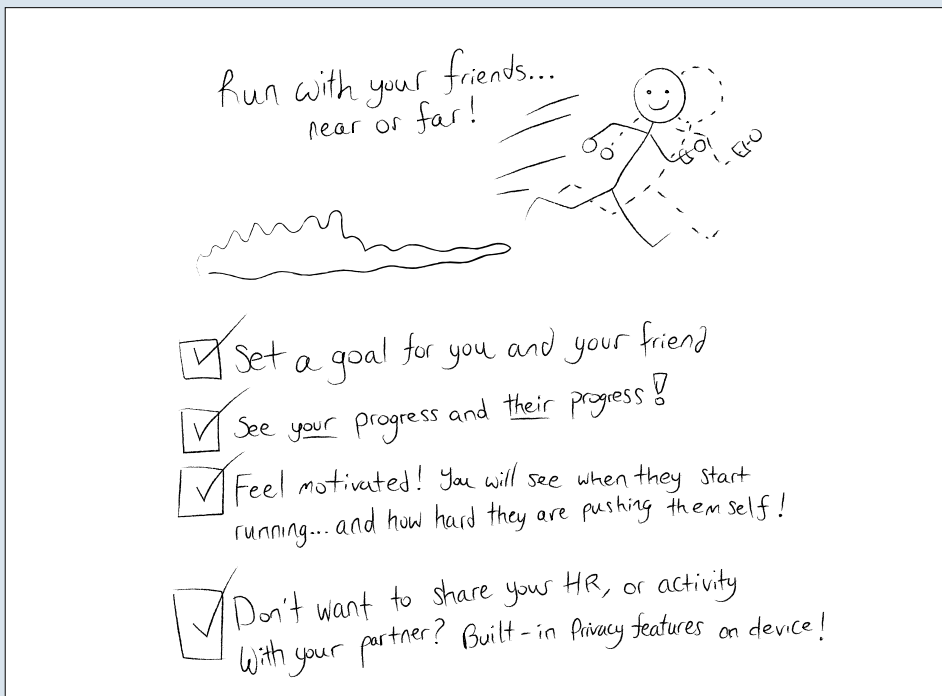 Run with your friends...
near or far!
Set a goal for you and your friend
See your progress and their progress!
Feel motivated! You will see when they start
running... and how hard they are pushing themself!
Don't want to share your HR, or activity
With your partner? Built-in Privacy features on device!